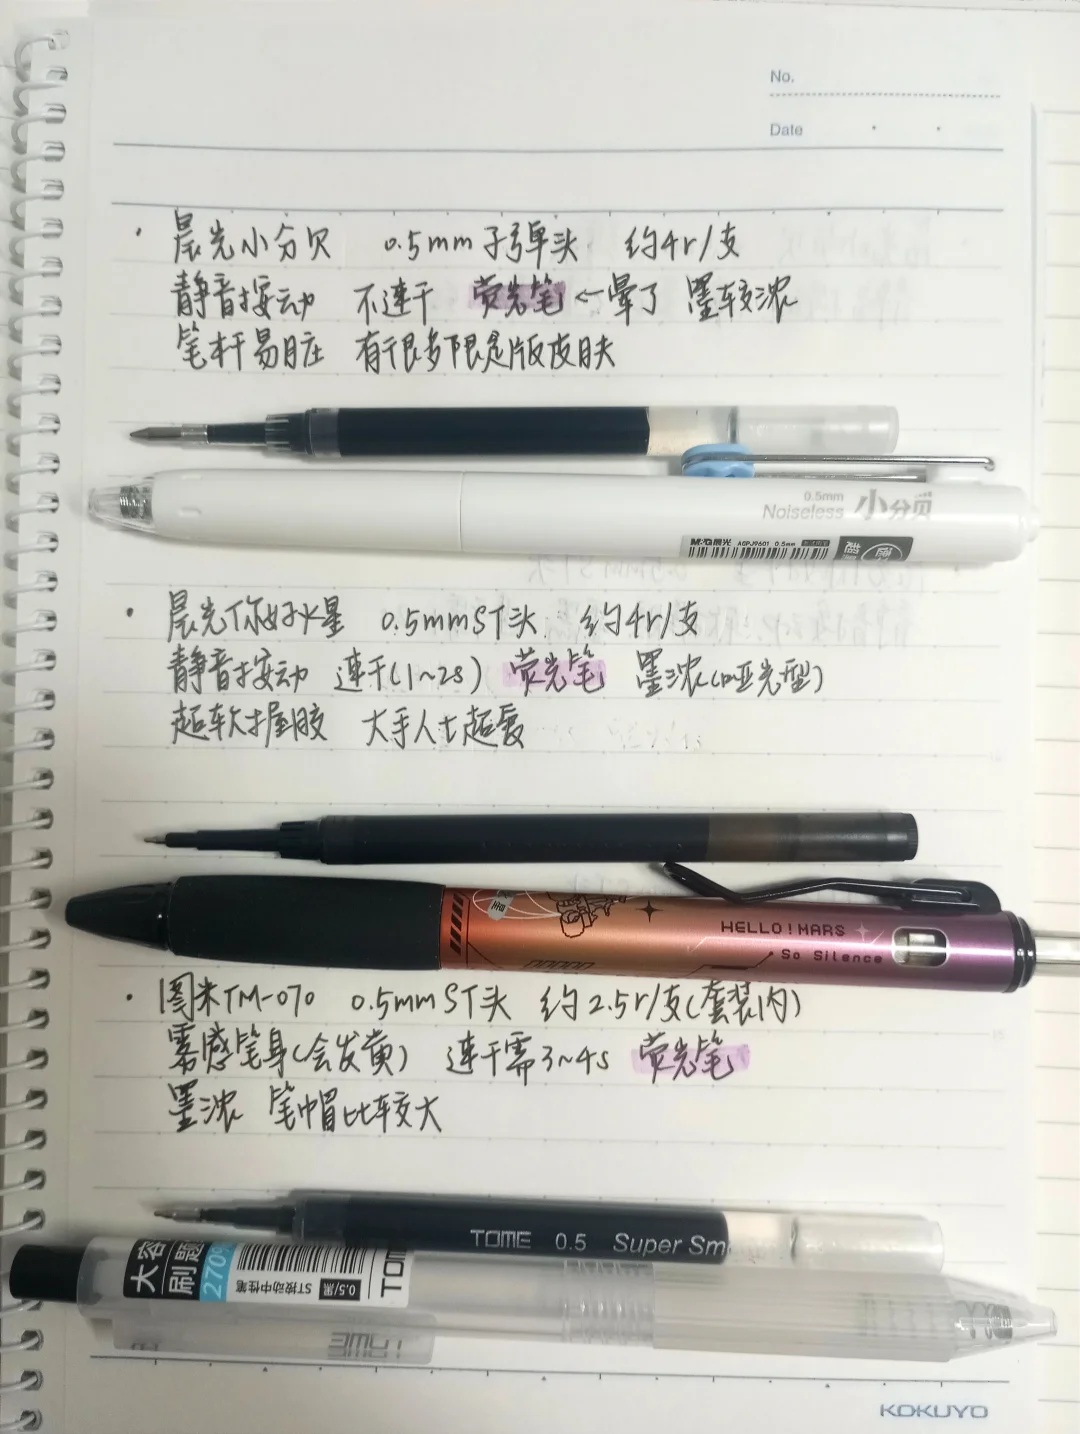 No.
Date
晨光小分贝 0.5mm子弹头 约4r/支
静音按动 不速干 荧光笔←晕了 墨较浓
笔杆易脏 有很多限定版皮肤
0.5mm
Noiseless 小分贝
M&G晨光 AGPJ9601 0.5mm
晨光你好火星 0.5mmST头 约4r/支
静音按动 速干(1~2s) 荧光笔 墨浓(哑光型)
超软握胶 大手人士超爱
HELLO!MARS
So Silence
图米TM-070 0.5mmST头 约2.5r/支(套装内)
雾感笔身(会发黄) 速干需3~4s 荧光笔
墨浓 笔帽比较大
TOME 0.5 Super Sm
大容
刷题
2709
ST按动中性笔
0.5/黑
TO
KOKUYO